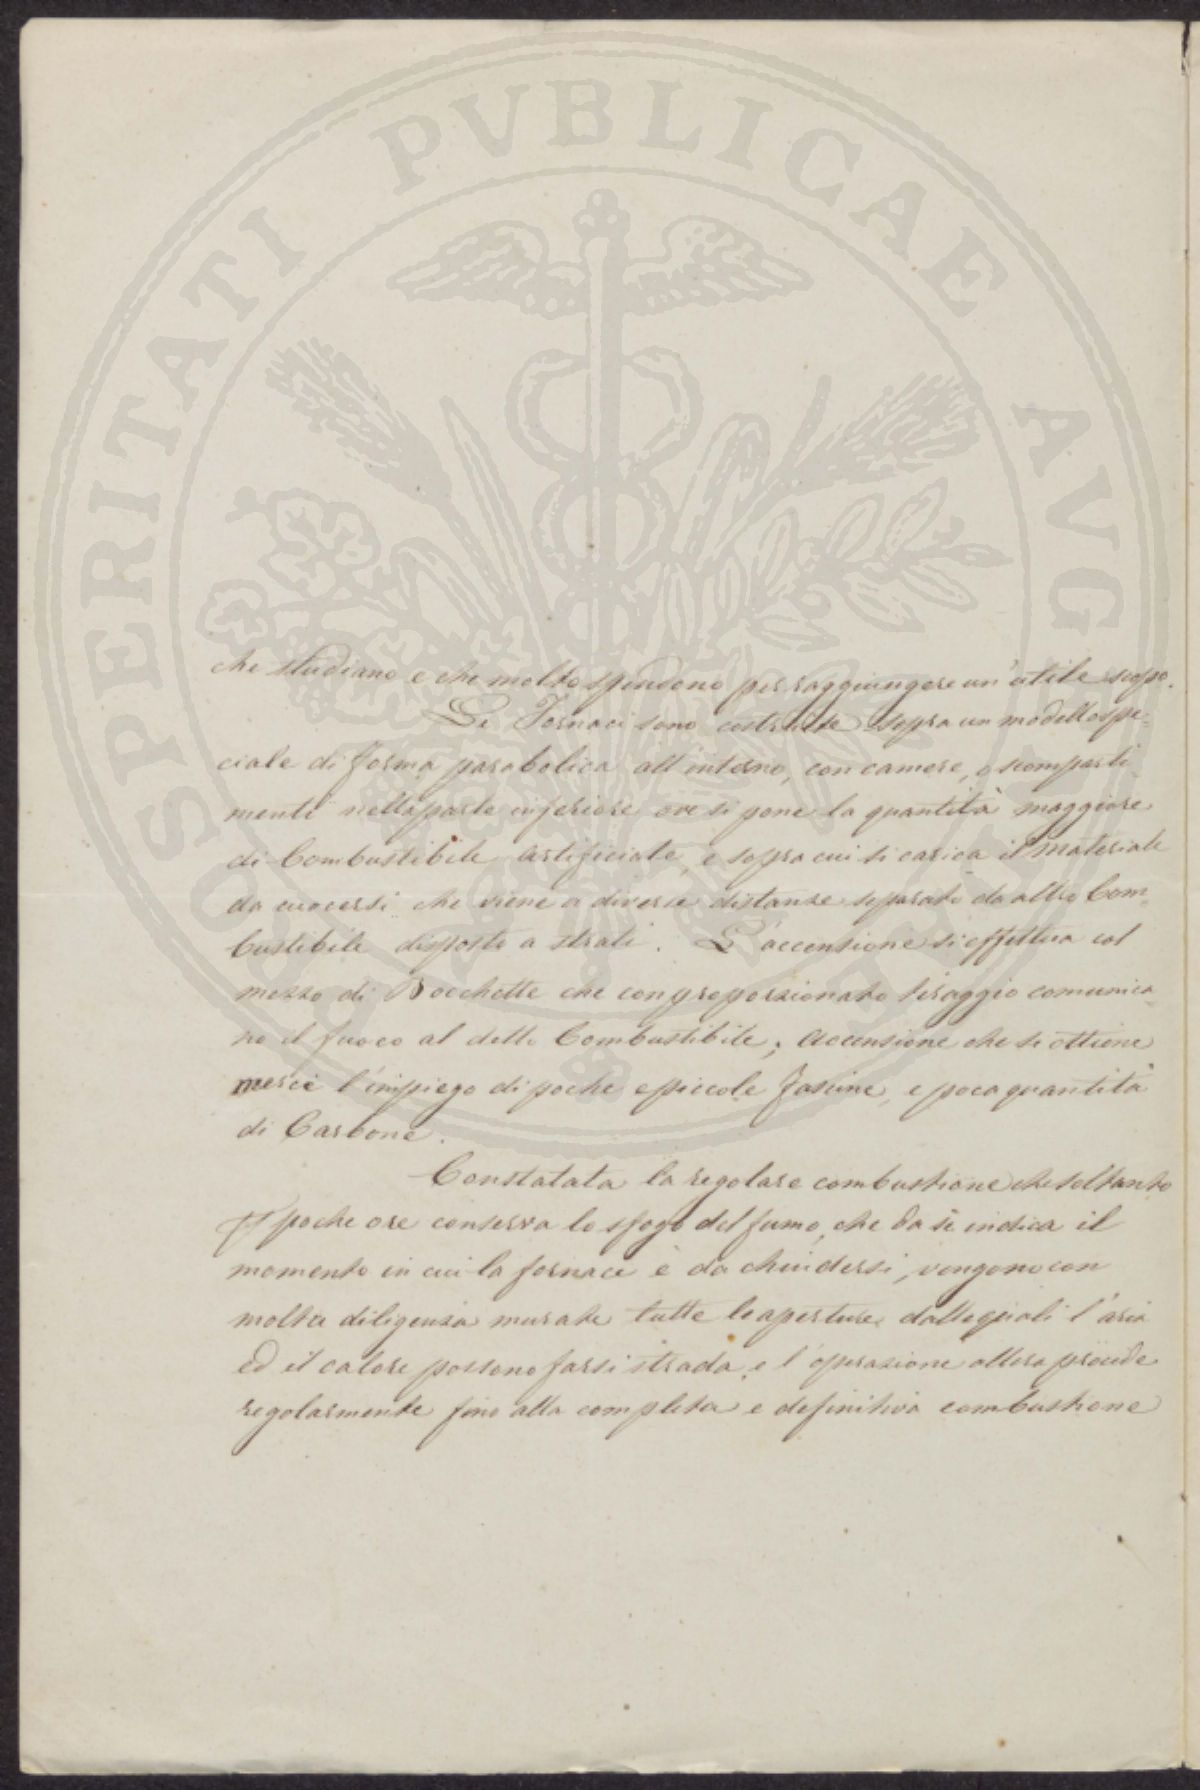 PROSPERITATI PVBLICAE AVGENDAE
che studiano e che molto spendono per raggiungere un'utile scopo.
Le Fornaci sono costruite sopra un modello spe-
ciale di forma parabolica all'interno, con camere, o scomparti-
menti nella parte inferiore ove si pone la quantità maggiore
di Combustibile Artificiale, e sopra cui si carica il materiale
da cuocersi che viene a diverse distanze separato da altro Com-
bustibile disposto a strati. L'accensione si effettua col
mezzo di Bocchette che con proporzionato tiraggio comunica-
no il fuoco al detto Combustibile; Accensione che si ottiene
mercè l'impiego di poche e piccole fascine, e poca quantità
di Carbone.
Constatata la regolare combustione che soltanto
poche ore conserva lo sfogo del fumo, che da sè indica il
momento in cui la fornace è da chiudersi, vengono con
molta diligenza murate tutte le aperture dalle quali l'aria
ed il calore possono farsi strada, e l'operazione allora procede
regolarmente fino alla completa e definitiva combustione